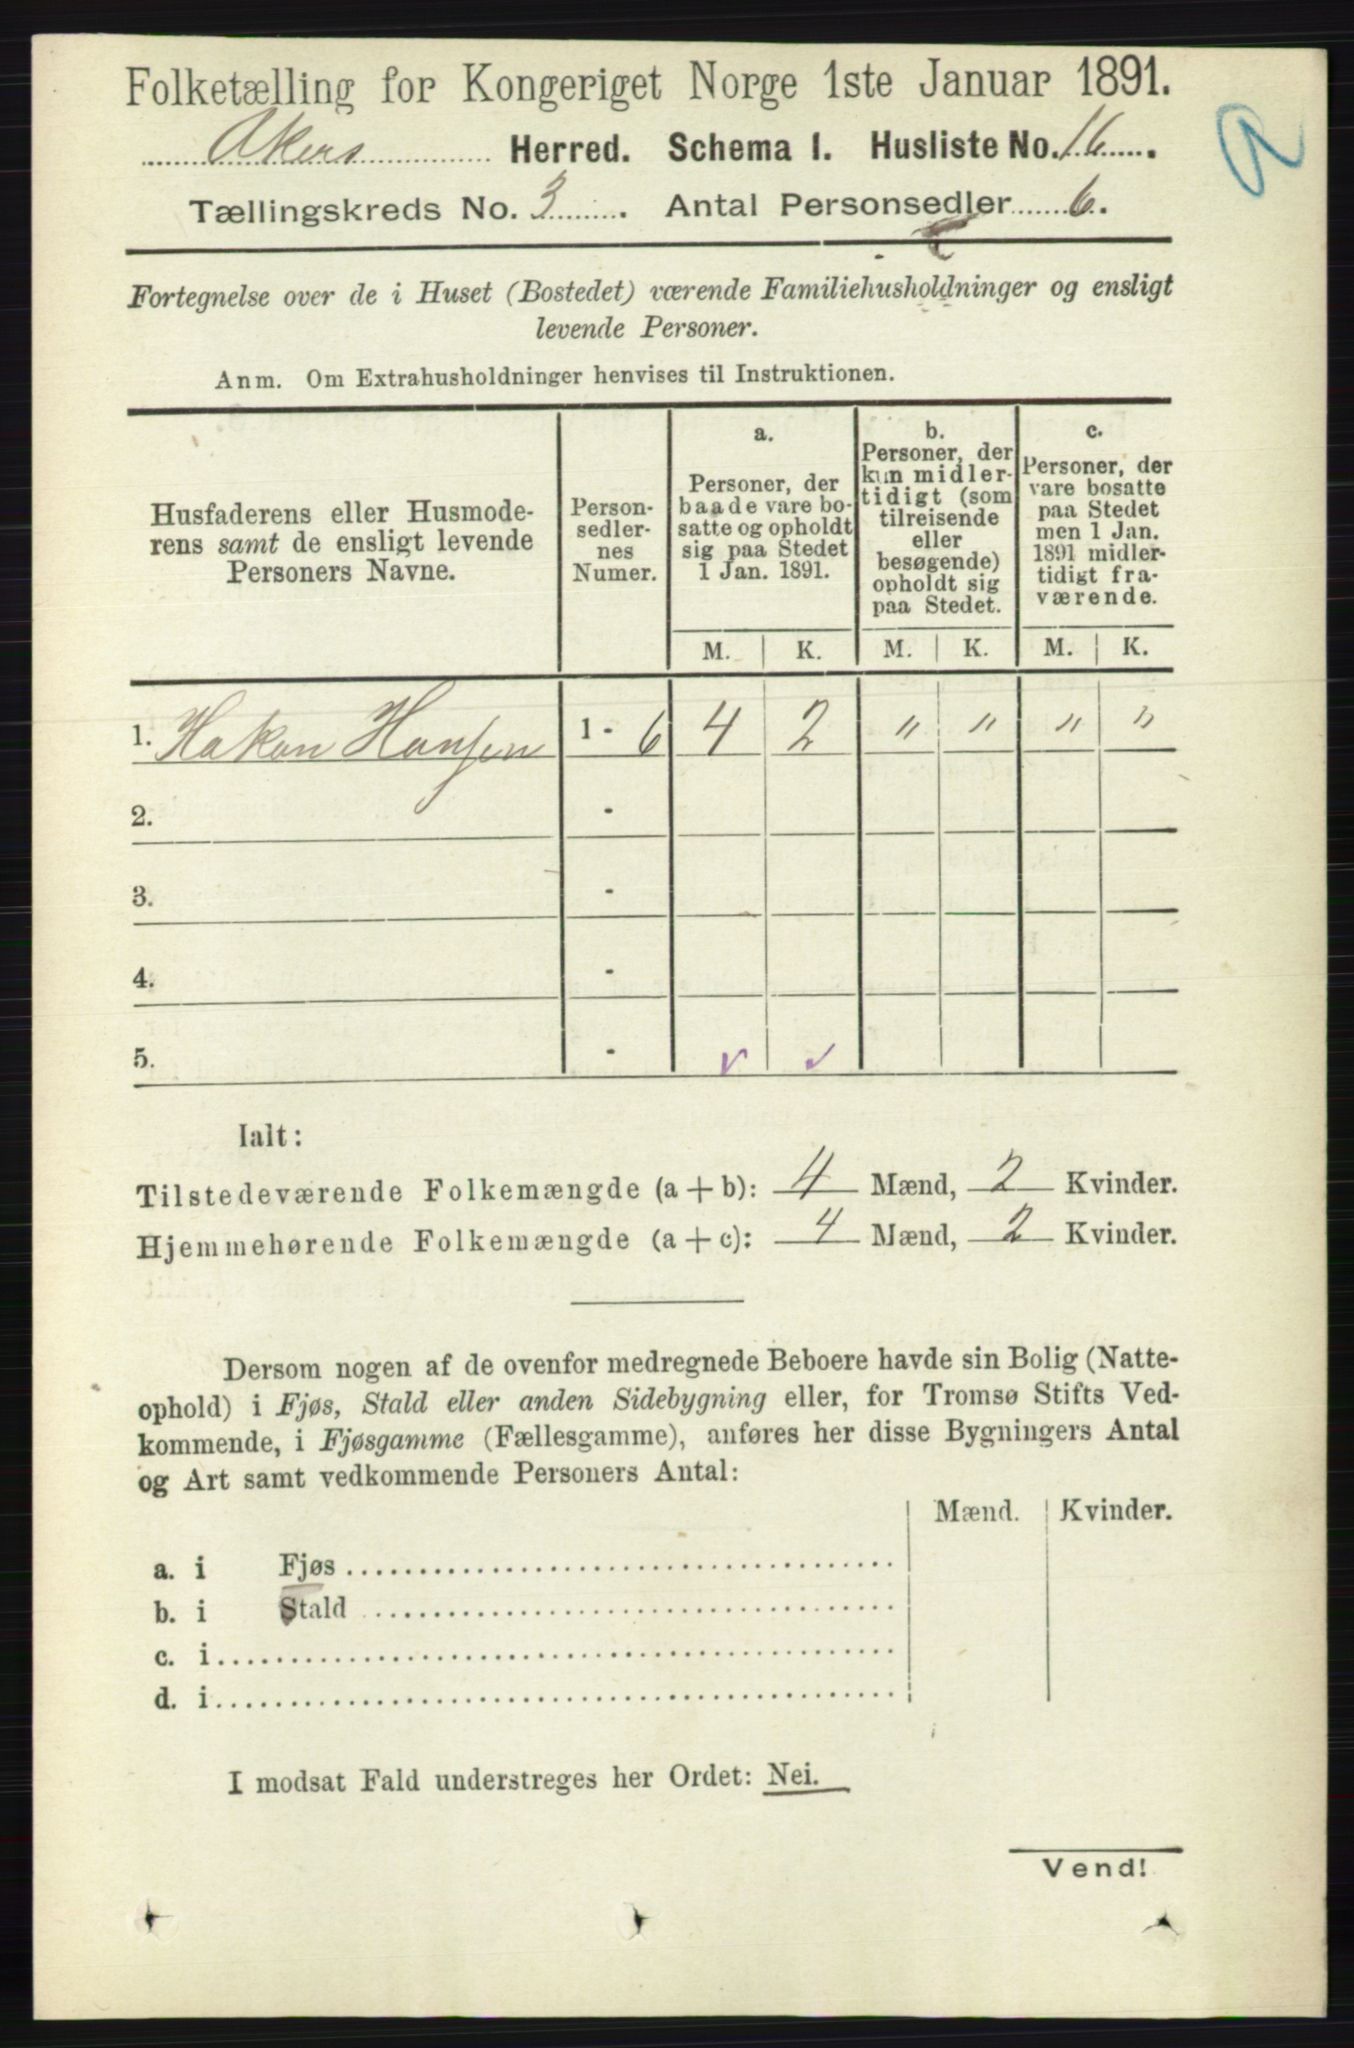 Folketælling for Kongeriget Norge 1ste Januar 1891.
Akers Herred. Schema I. Husliste No. 16.
Tællingskreds No. 3. Antal Personsedler 6.
Fortegnelse over de i Huset (Bostedet) værende Familiehusholdninger og ensligt
levende Personer.
Anm. Om Extrahusholdninger henvises til Instruktionen.
Husfaderens eller Husmode-
rens samt de ensligt levende
Personers Navne.
Person-
sedler-
nes
Numer.
a.
Personer, der
baade vare bo-
satte og opholdt
sig paa Stedet
1 Jan. 1891.
b.
Personer, der
kun midler-
tidigt (som
tilreisende
eller
besøgende)
opholdt sig
paa Stedet.
c.
Personer, der
vare bosatte
paa Stedet
men 1 Jan.
1891 midler-
tidigt fra-
værende.
M. K. M. K. M. K.
1. Hakon Hansen 1 - 6 4 2 " " " "
2. -
3. -
4. -
5. -
Ialt:
Tilstedeværende Folkemængde (a + b): 4 Mænd, 2 Kvinder.
Hjemmehørende Folkemængde (a + c): 4 Mænd, 2 Kvinder.
Dersom nogen af de ovenfor medregnede Beboere havde sin Bolig (Natte-
ophold) i Fjøs, Stald eller anden Sidebygning eller, for Tromsø Stifts Ved-
kommende, i Fjøsgamme (Fællesgamme), anføres her disse Bygningers Antal
og Art samt vedkommende Personers Antal:
Mænd. Kvinder.
a. i Fjøs
b. i Stald
c. i
d. i
I modsat Fald understreges her Ordet: Nei.
Vend!